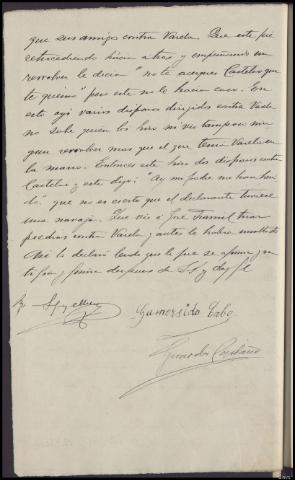 que sus amigos contra Varela. Que este fué
retrocediendo hacia atras y empuñando un
revolver le decia "no te acerques Castelao que
te quemo" pero este no le hacia caso. Con
esto oyó varios disparos dirigidos contra Varela
no sabe quien los hizo ni vió tampoco nin
gun revolver mas que el que tenia Varela en
la mano. Entonces este hizo dos disparos contra
Castelao y este dijo: "Ay mi padre me han heri
do" que no es cierto que el declarante tuviese
una navaja. Que vió a José Manuel tirar
piedras contra Varela y antes le habia insultado
Asi lo declaró leido que le fue se afirma y ra
tifica y firma despues de S.Sª y doy fé
Gumersindo Tabo
Ricardo